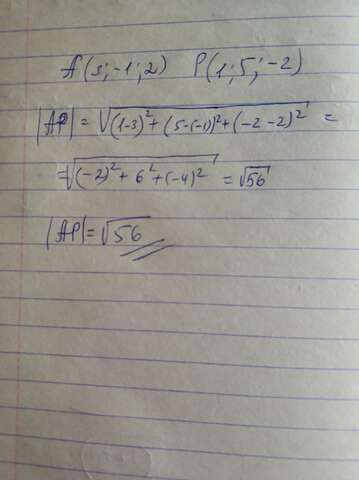 A(3;-1;2) P(1;5;-2)
|AP| = √((1-3)²+(5-(-1))²+(-2-2)²) =
= √((-2)²+6²+(-4)²) = √56
|AP| = √56